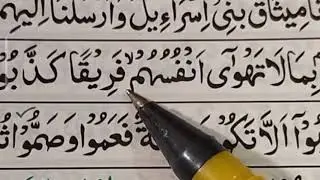 نَا مِيْثَاقَ بَنِيْٓ اِسْرَآءِيْلَ وَاَرْسَلْنَاۤ اِلَيْهِمْ
بِمَا لَا تَهْوٰٓى اَنْفُسُهُمْ ۙ فَرِيْقًا كَذَّبُوْ
بُوْۤا اَلَّا تَكُوْ ةٌ فَعَمُوْا وَصَمُّوْا